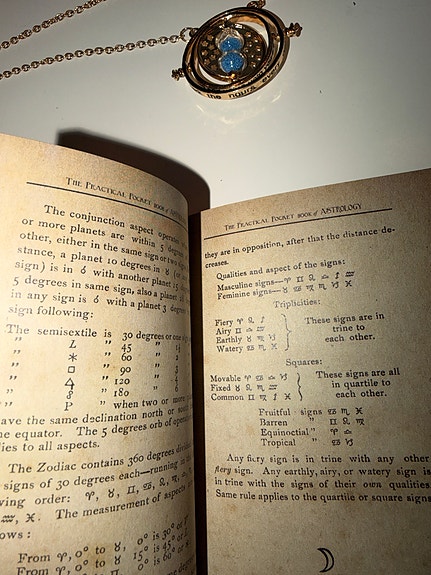 the hours
THE PRACTICAL POCKET BOOK of
The conjunction aspect operates
or more planets are within 5 degrees
other, either in the same sign or two
stance, a planet 10 degrees in ♉
sign) is in ☌ with another planet 15
5 degrees in same sign, also a planet
in any sign is ☌ with a planet 3
sign following:
The semisextile is 30 degrees or one
" ∠ " 45
" ⚹ " 60 " 2
" □ " 90 " 3
" △ " 120 " 4
" ☍ " 180 " 6
" P " when two or more
have the same declination north or
the equator. The 5 degrees orb of
lies to all aspects.
The Zodiac contains 360 degrees
signs of 30 degrees each—running in
order: ♈, ♉, ♊, ♋, ♌,
♒, ♓. The measurement of aspects
ows:
From ♈, 0° to ♉, 0° is 30° or
From ♈, 0° to ♉ 15° is 45° or
THE PRACTICAL POCKET BOOK of ASTROLOGY
they are in opposition, after that the distance de-
creases.
Qualities and aspect of the signs:
Masculine signs—♈ ♊ ♌ ♎ ♐ ♒
Feminine signs—♉ ♋ ♍ ♏ ♑ ♓
Triplicities:
Fiery ♈ ♌ ♐
Airy ♊ ♎ ♒
Earthly ♉ ♍ ♑
Watery ♋ ♏ ♓
These signs are in
trine to
each other.
Squares:
Movable ♈ ♋ ♎ ♑
Fixed ♉ ♌ ♏ ♒
Common ♊ ♍ ♐ ♓
These are all
in quartile to
each other.
Fruitful signs ♋ ♏ ♓
Barren " ♊ ♌ ♍
Equinoctial " ♈ ♎
Tropical " ♋ ♑
Any fiery sign is in trine with any other
fiery sign. Any earthly, airy, or watery sign is
in trine with the signs of their own qualities.
Same rule applies to the quartile or square signs